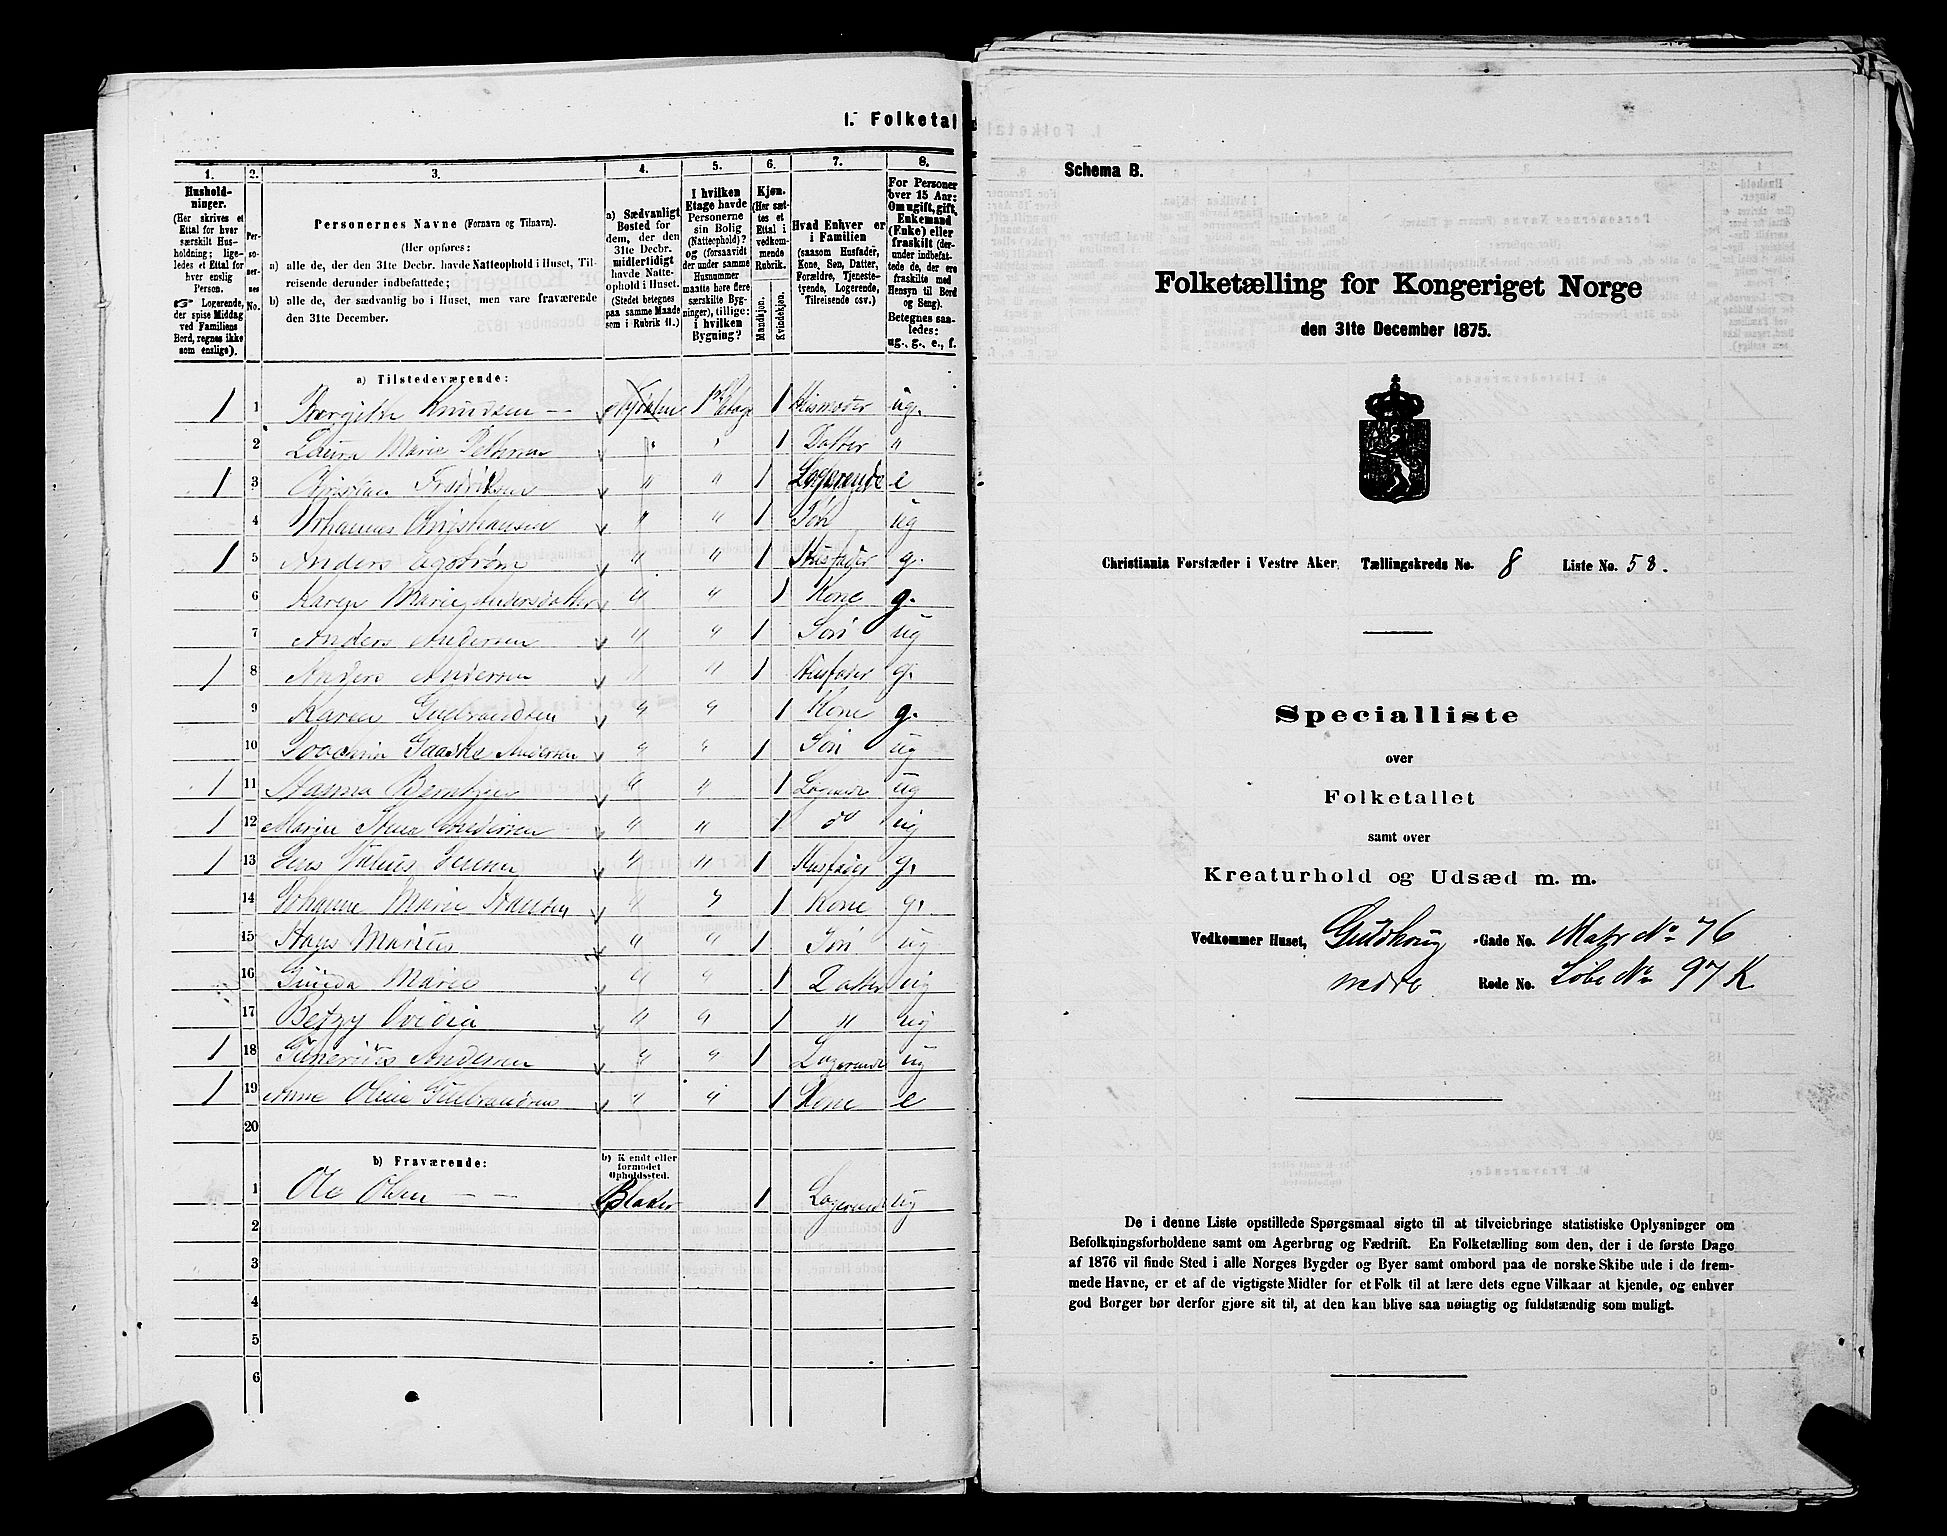 I. Folketal
1. 2. 3. 4. 5. 6. 7. 8.
Hushold-
ninger.
(Her skrives et
Ettal for hver
særskilt Hus-
holdning; lige-
ledes et Ettal for
hver enslig
Person.
☞ Logerende,
der spise Middag
ved Familiens
Bord, regnes ikke
som enslige).
Per-
so-
ner-
nes
No.
Personernes Navne (Fornavn og Tilnavn).
(Her opføres:
a) alle de, der den 31te Decbr. havde Natteophold i Huset, Til-
reisende derunder indbefattede;
b) alle de, der sædvanlig bo i Huset, men vare fraværende
den 31te December.
a) Sædvanligt
Bosted for
dem, der den
31te Decbr.
midlertidigt
havde Natte-
ophold i Huset.
(Stedet betegnes
paa samme Maade
som i Rubrik 11.)
I hvilken
Etage havde
Personerne
sin Bolig
(Natteophold)?
og (forsaavidt
der under samme
Husnummer
maatte høre flere
særskilte Byg-
ninger), tillige:
i hvilken
Bygning?
Kjøn.
(Her sæt-
tes et
Ettal i
vedkom-
mende
Rubrik.
Mandkjøn.
Kvindekjøn.
Hvad Enhver er
i Familien
(saasom Husfader,
Kone, Søn, Datter,
Forældre, Tjeneste-
tyende, Logerende,
Tilreisende osv.)
For Personer
over 15 Aar:
Om ugift, gift,
Enkemand
(Enke) eller
fraskilt (der-
under indbefat-
tede de, der ere
fraskilte med
Hensyn til Bord
og Seng).
Betegnes saa-
ledes:
ug., g., e., f.
a) Tilstedeværende:
1 1 Borgithe Knudsen -- 1ste Etage 1 Husmoder ug.
2 Laura Marie " " 1 Datter "
1 3 Christian Fredriksen " " 1 Logerende e
4 Johannes Christiansen " " 1 Søn ug
1 5 Anders " " 1 Husfader g.
6 Karen Marie Andersdatter " " 1 Kone g.
7 Anders Andersen " " 1 Søn ug
1 8 Anders Andersen " " 1 Husfader g.
9 Karen Gudbrandsen " " 1 Kone g.
10 Joachim Andersen " " 1 Søn ug
1 11 Hanna Berntsen " " 1 Logerende ug
1 12 Maren Andersen " " 1 do ug
1 13 Jens Julius Jensen " " 1 Husfader g.
14 Johanne Marie Hansen " " 1 Kone g.
15 Hans Marius " " 1 Søn ug
16 Gunda Marie " " 1 Datter ug
17 Betzy Ovidia " " 1 " ug
1 18 Andersen " " 1 Logerende ug
1 19 Anne Oline Gudbrandsen " " 1 Kone e
20
b) Fraværende:
b) Kendt eller
formodet
Opholdssted.
1 Ole Olsen -- -- 1 Logerende ug
2
3
4
5
6
Schema B.
Folketælling for Kongeriget Norge
den 31te December 1875.
Christiania Forstæder i Vestre Aker, Tællingskreds No. 8 Liste No. 58.
Specialliste
over
Folketallet
samt over
Kreaturhold og Udsæd m. m.
Vedkommer Huset, Guldhoug -Gade No. Matr No 76
nedre Rode No. Løbe No 97 K
De i denne Liste opstillede Spørgsmaal sigte til at tilveiebringe statistiske Oplysninger om
Befolkningsforholdene samt om Agerbrug og Fædrift. En Folketælling som den, der i de første Dage
af 1876 vil finde Sted i alle Norges Bygder og Byer samt ombord paa de norske Skibe ude i de frem-
mede Havne, er et af de vigtigste Midler for et Folk til at lære dets egne Vilkaar at kjende, og enhver
god Borger bør derfor gjøre sit til, at den kan blive saa nøiagtig og fuldstændig som muligt.